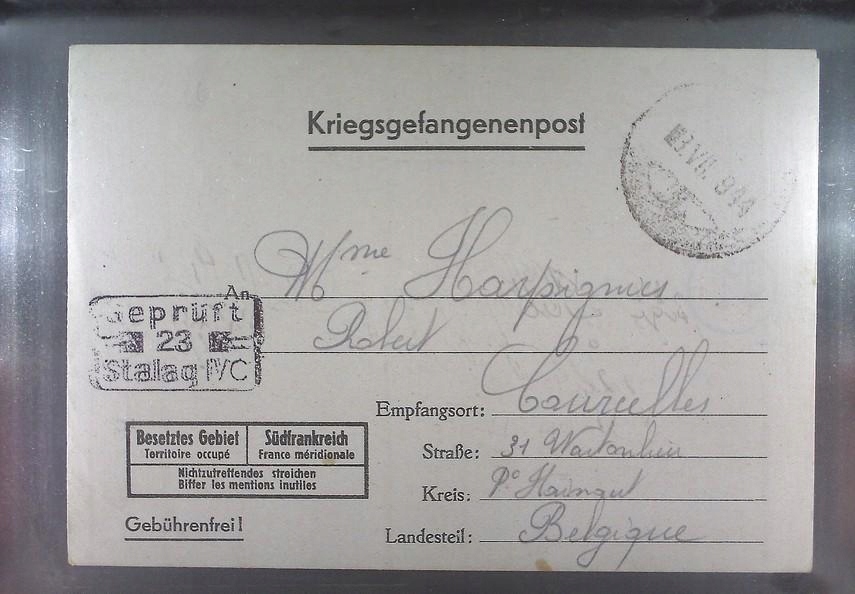 Kriegsgefangenenpost
VII. 944
Mme Harpignies
An
Robert
Geprüft
23
Stalag IVC
Empfangsort: Courcelles
Besetztes Gebiet Südfrankreich
Territoire occupé France méridionale
Straße: 31
Nichtzutreffendes streichen
Biffer les mentions inutiles
Kreis: Po Hainaut
Gebührenfrei!
Landesteil: Belgique